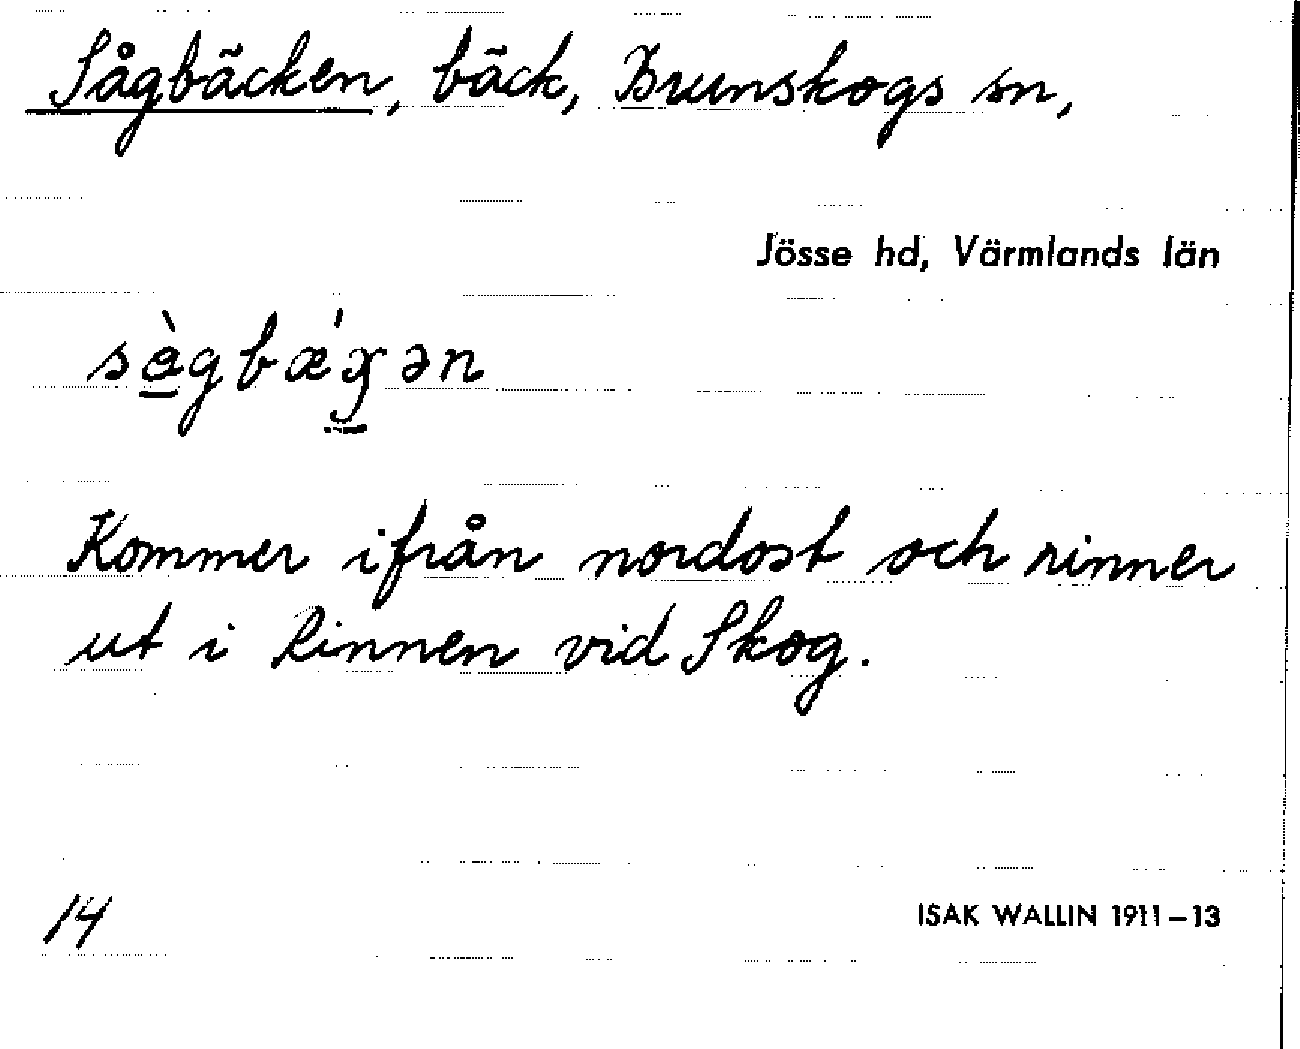 Sågbäcken, bäck, Brunskogs sn,
Jösse hd, Värmlands län
sàgbǽχən
Kommer ifrån nordost och rinner
ut i Rinnen vid Skog.
14
ISAK WALLIN 1911–13